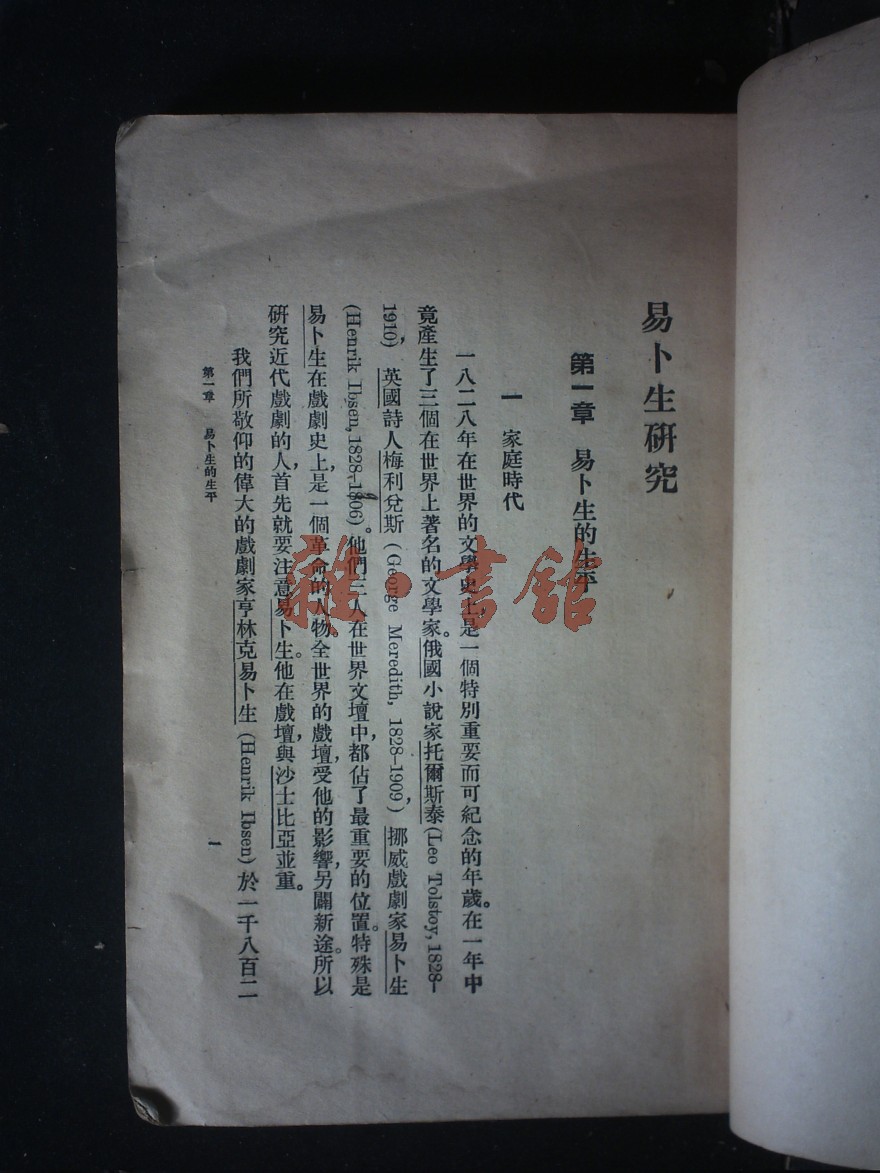 易卜生研究
第一章 易卜生的生平
一 家庭時代
一八二八年在世界的文學史上是一個特別重要而可紀念的年歲。在一年中
竟產生了三個在世界上著名的文學家。俄國小說家托爾斯泰(Leo Tolstoy, 1828–
1910), 英國詩人梅利兌斯 (George Meredith, 1828–1909), 挪威戲劇家易卜生
(Henrik Ibsen, 1828–1906)。他們三人在世界文壇中,都佔了最重要的位置。特殊是
易卜生在戲劇史上,是一個革命的人物全世界的戲壇,受他的影響,另闢新途。所以
研究近代戲劇的人,首先就要注意易卜生。他在戲壇,與沙士比亞並重。
我們所敬仰的偉大的戲劇家亨林克易卜生 (Henrik Ibsen) 於一千八百二
第一章 易卜生的生平
一
雜·書館